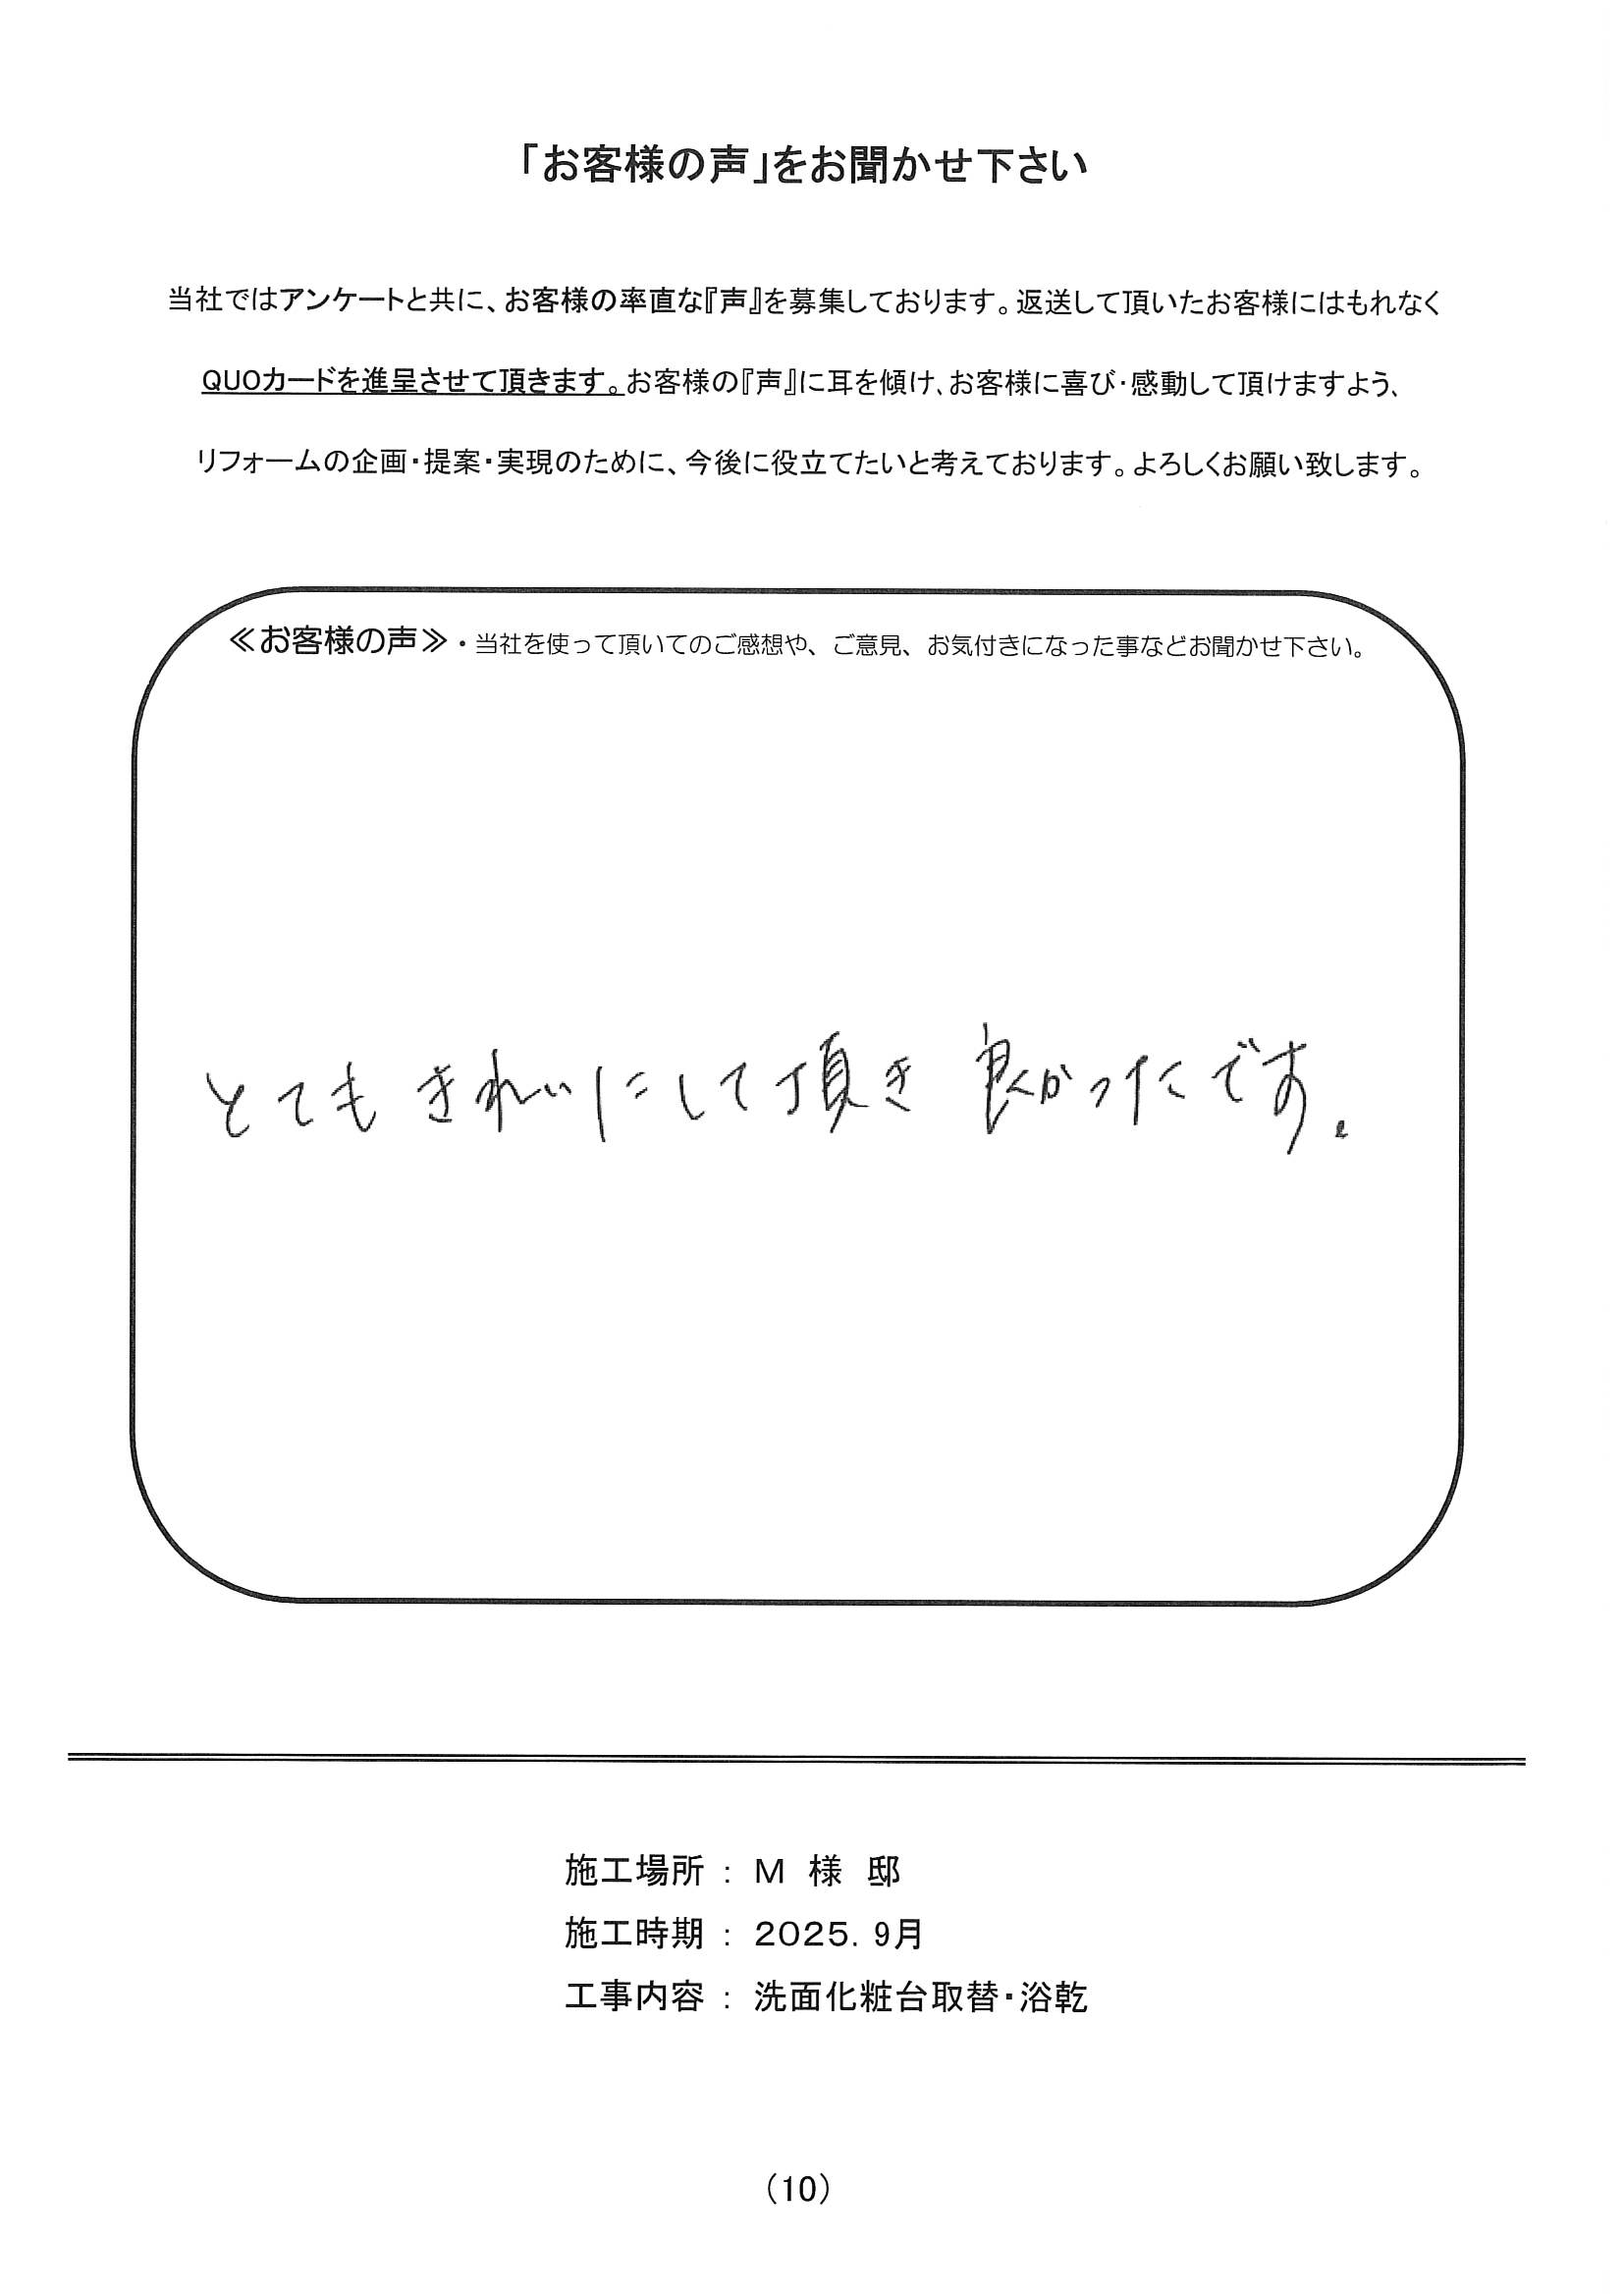 「お客様の声」をお聞かせ下さい
当社ではアンケートと共に、お客様の率直な『声』を募集しております。返送して頂いたお客様にはもれなく
QUOカードを進呈させて頂きます。お客様の『声』に耳を傾け、お客様に喜び・感動して頂けますよう、
リフォームの企画・提案・実現のために、今後に役立てたいと考えております。よろしくお願い致します。
≪お客様の声≫・当社を使って頂いてのご感想や、ご意見、お気付きになった事などお聞かせ下さい。
とても きれいにして頂き 良かったです。
施工場所 : M 様 邸
施工時期 : 2025. 9月
工事内容 : 洗面化粧台取替・浴乾
(10)